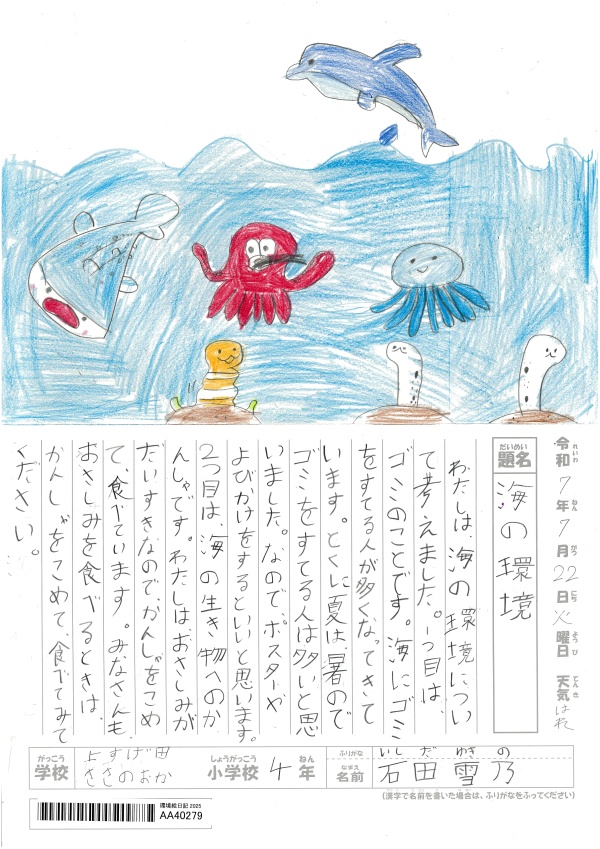 令和 7年 7月 22日 火曜日 天気 はれ
れいわ ねん がつ にち ようび てんき
だいめい
題名 海の環境
わたしは、海の環境につい
て考えました。一つ目は、
ゴミのことです。海にゴミ
をすてる人が多くなってきて
います。とくに夏は、暑ので
ゴミをすてる人は多いと思
いました。なので、ポスターや
よびかけをするといいと思います。
2つ目は、海の生き物へのか
んしゃです。わたしは、おさしみが
だいすきなので、かんしゃをこめ
て、食べています。みなさんも、
おさしみを食べるときは、
かんしゃをこめて、食べてみて
ください。
がっこう
学校 上すげ田 ささのおか
しょうがっこう ねん
小学校 4年
ふりがな いしだ ゆきの
なまえ
名前 石田 雪乃
(漢字で名前を書いた場合は、ふりがなをふってください)
環境絵日記 2025
AA40279